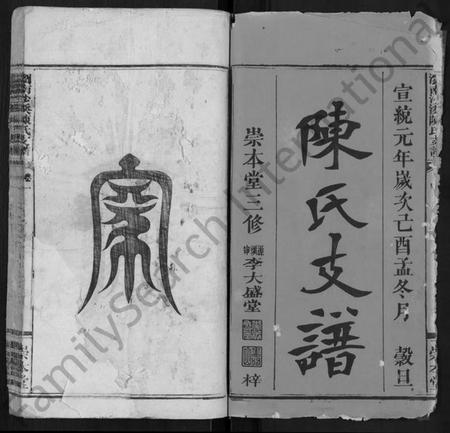 宣統元年歲次己酉孟冬月 穀旦
陳氏支譜
崇本堂三修
李大盛堂
梓
宗
崇本堂
崇本堂
FamilySearch International